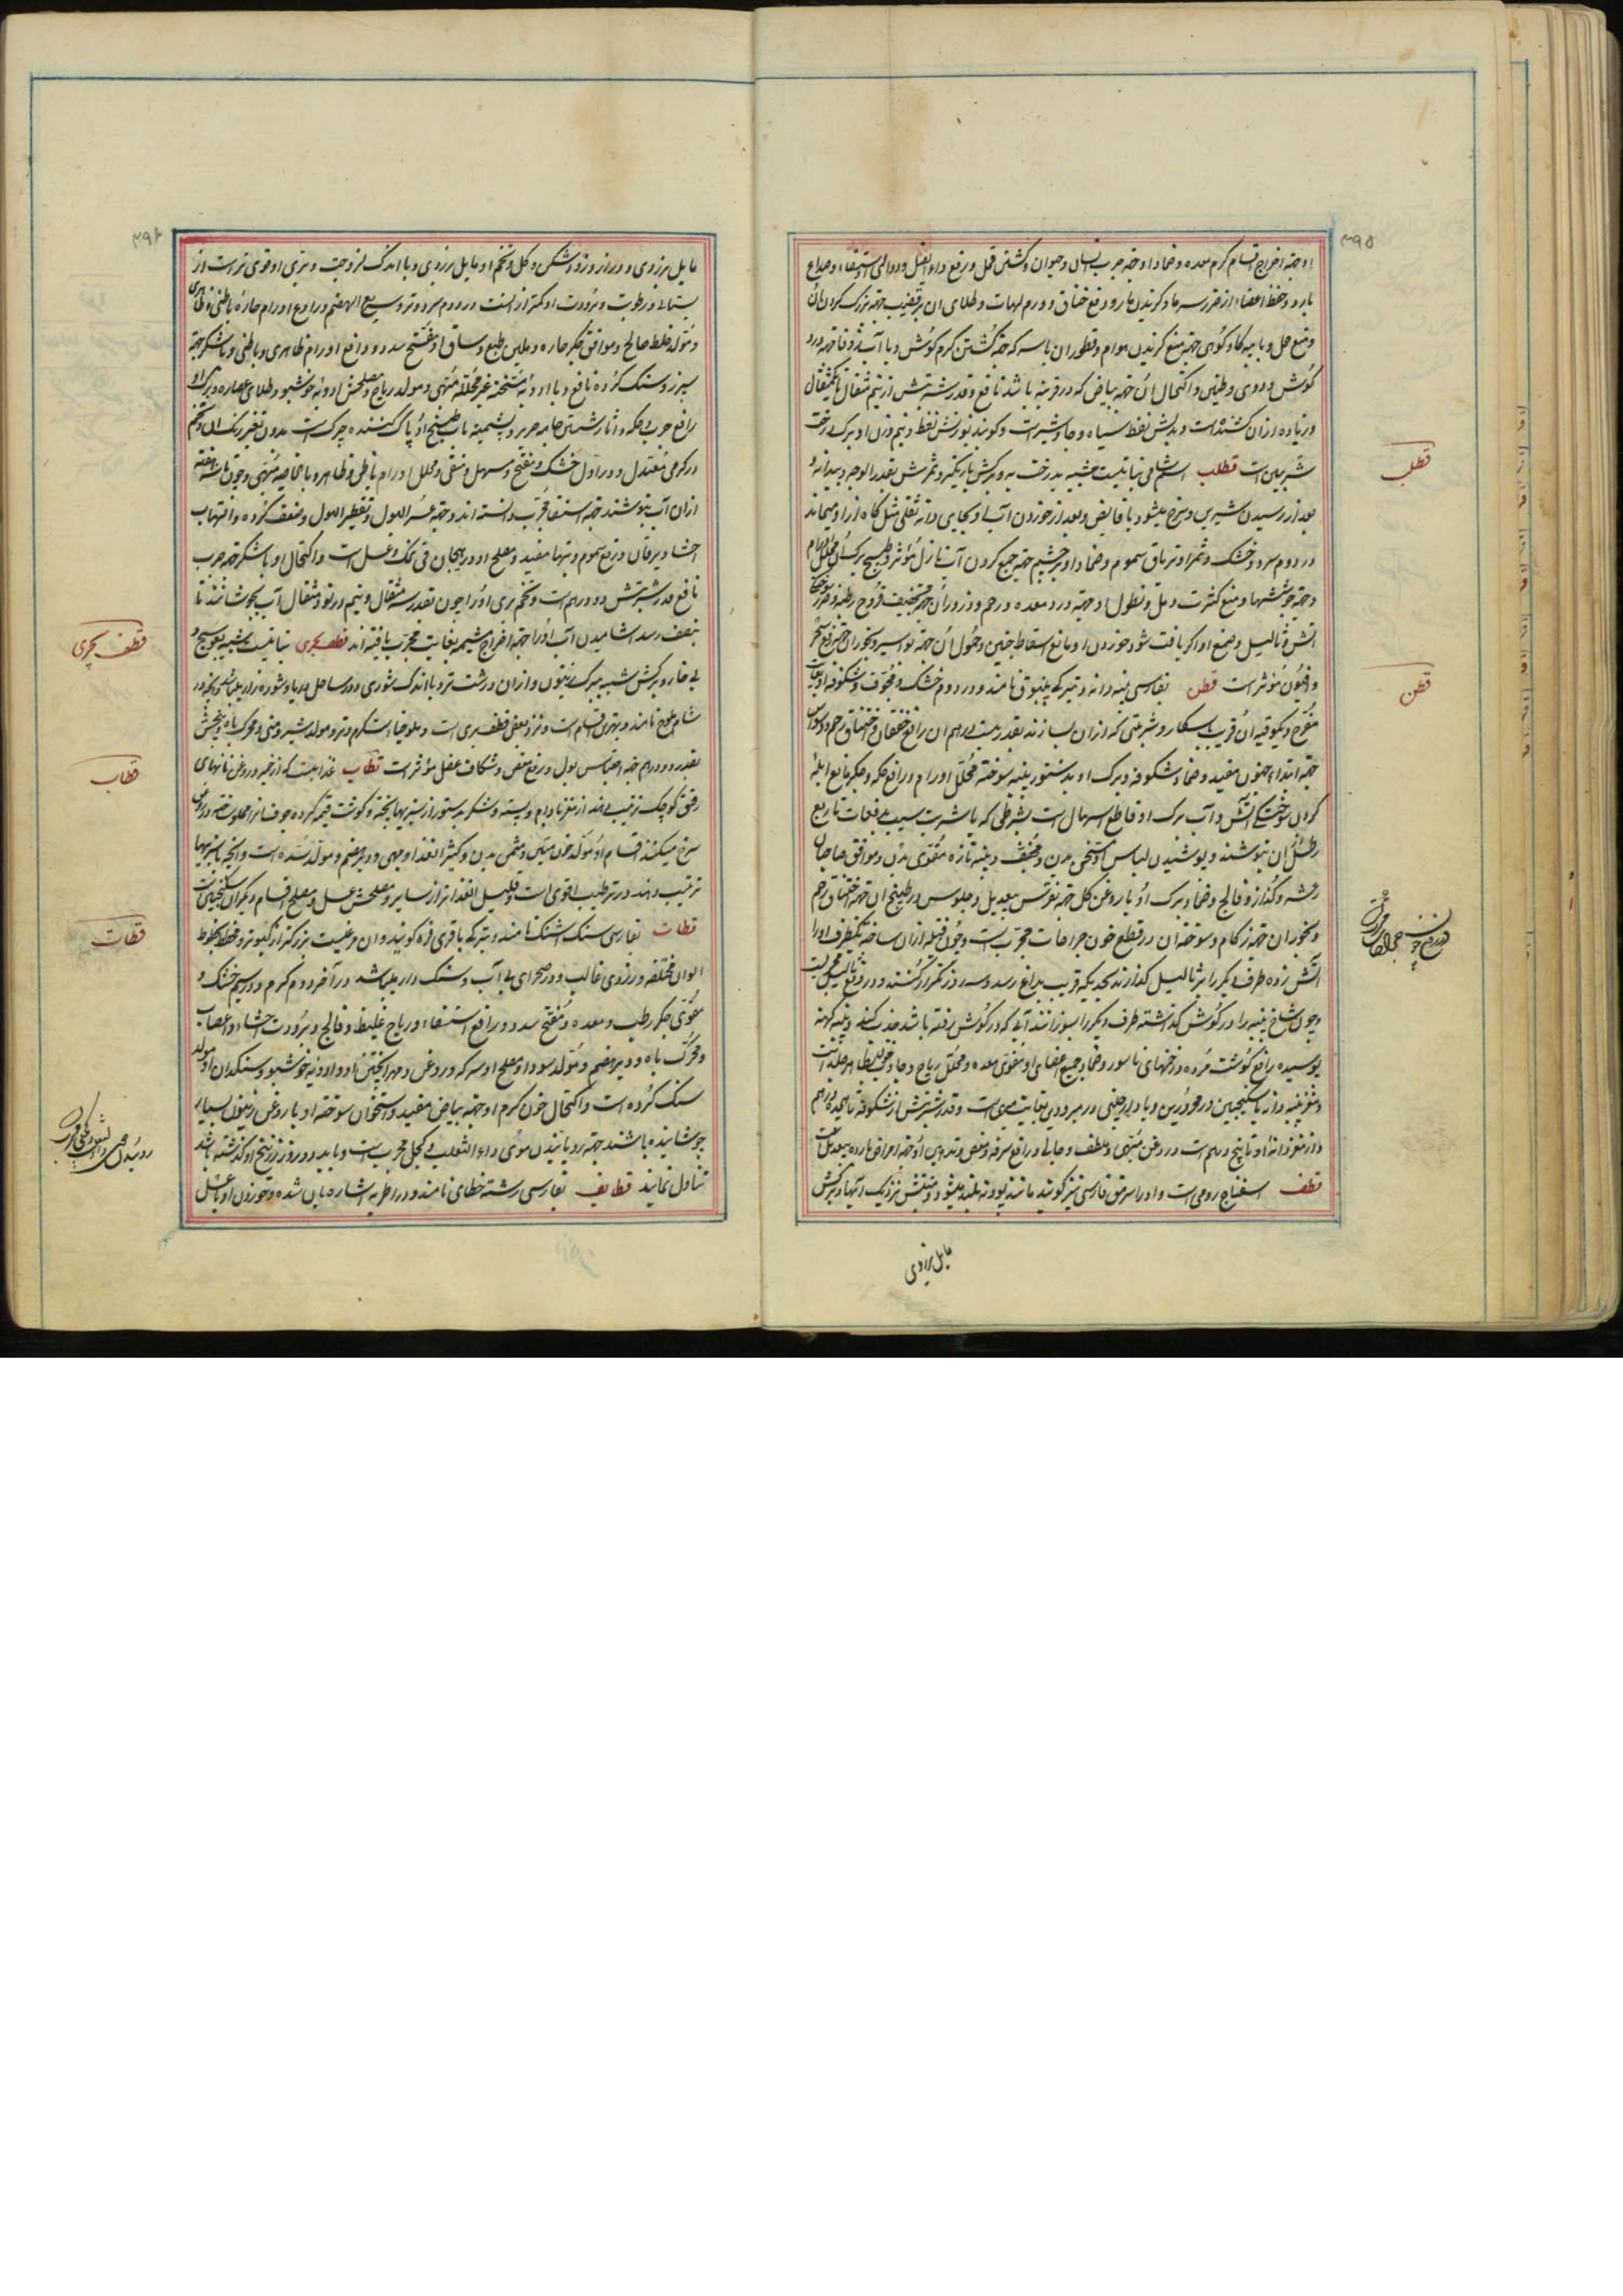 ۳۹۵
او جهة اخراج اقسام کرم معده و ضماد او جهة جرب انسان و حیوان و کشتن قمل و رفع داء الفیل و دوالی و استسقاء و صداع
بارد و حفظ اعضاء از ضرر سرما و گزیدن مار و رفع خناق و ورم لهات و طلای ان بر قضیب جهة بزرک کردن ان
و منع حمل و با پیه کاو کوهی جهة منع گزیدن هوام و قطور ان با سرکه جهة کشتن کرم گوش و با آب زوفا جهة درد
گوش و دوی و طنین و اکتحال ان جهة بیاض که در قرنیه باشد نافع و قدر شربتش از نیم مثقال تا یکمثقال
و زیاده از ان کشنده است و بدلش نفط سیاه و جاوشیر است و گویند بوزنش نفط و نیم وزن او برک درخت
شربین است قطلب اسم شامی نباتیست شبیه بدرخت به و برکش باریکتر و ثمرش بقدر الوچه و بیدانه و
بعد از رسیدن شیرین و سرخ میشود با قابض و بعد از خوردن آب او بجای دانه ثقلی مثل کاه از او میماند
در دوم سرد و خشک و ثمر او تریاق سموم و ضماد او بر چشم جهة جمع کردن آب نازل مؤثر و طبیخ برک او محلل اورام
و جهة جوششها و منع کثرت دمل و نطول او جهة درد معده و رحم و ذرور ان جهة تجفیف قروح رطبه و ضرر سوختگی
اتش و ثالیل و صمغ او اگر یافت شود خوردن او مانع اسقاط جنین و حمول ان جهة بواسیر و بخور ان جهة رفع سحر
و افیون مؤثر است قطن بفارسی پنبه دانه و بترکی پنبوق نامند و در دوم خشک و مجوف و شکوفه او بغایت
مفرح و یکوقیه ان قریب باسکار و شربتی که از ان بسازند بقدر بیست درهم ان رافع خفقان و اختناق رحم و وسواس
جهة ابتداء جنون مفید و ضماد شکوفه و برک او بدستور پنبه سوخته محلل اورام و رافع حکه و جکر مانع ابله
کردن سوختگی آتش و آب برک او قاطع اسهال است بشرطی که با شربت سیب بدفعات تا ربع
رطل ان بنوشند و پوشیدن لباس او مسخن بدن و مجفف و پنبه تازه مقوی بدن و موافق صاحبان
رعشه و کزاز و فالج و ضماد برک او با روغن کل جهة نقرس بیعدیل و جلوس در طبیخ ان جهة اختناق رحم
و بخور ان جهة زکام و سوخته ان در قطع خون جراحات مجرب است و چون فتیله از ان ساخته یکطرف او را
آتش زده طرف دیکر را بر ثالیل کذارند بحدیکه قریب بداغ رسد و سه روز تکرار کنند در رفع ثالیل مجربست
و چون شاخ پنبه را در گوش گذاشته طرف دیکر را بسوزانند آبی که در گوش رفته باشد جذب کند و پنبه کهنه
پوسیده رافع گوشت مرده و زخمهای ناسور و ضماد جمیع اعضای او مقوی معده و محلل ریاح
و مغز پنبه دانه با سکنجبین در محرورین و با دارچینی در مبرودین بغایت مبهی است و قدر شربتش از شکوفه تا پنج درهم
و از مغز دانه او تا پنج درهم است و روغن مبهی و ملطف و جالی و رافع سرفه و مغص و تدهین او جهة امراض بارده بیعدیل است
قطف اسفناج رومی است و او را سرمق فارسی نیز گویند مانند پودنه بلند میشود و منبتش نزدیک آبها و برکش
مایل بزردی
قطلب
قطن
۳۹۶
مایل بزردی و دراز و زود شکن و کل و تخم او مایل بزردی و با اندک لزوجت و بری او قوی تر است از
بستانی و رطوبت و برودت او کمتر از انست در دوم سرد و تر و سریع الهضم و رادع اورام حاره باطنی و ظاهری
و مولد خلط صالح و موافق جکر حاره و ملین طبع و ساق او مفتح سدد و رافع اورام ظاهری و باطنی و با شکر جهة
سپرز و سنک گرده نافع و با ادویه مسخنه غیر محلله مبهی و مولد ریاح و مصلحش ادویه خوشبو و طلای عصاره و برک او
رافع جرب و حکه و آثار و شستن جامه حریر و پشمینه باب طبیخ او پاک کننده چرک است بدون تغییر رنک ان و تخم
در کرمی معتدل و در اول خشک و مفتح و مسهل و منقی و محلل اورام باطنی و ظاهره بالخاصیه مبهی و چون
از ان آب بنوشند جهة استسقا مجرب دانسته اند و جهة عسر البول و تقطیر البول و ضعف گرده و التهاب
احشا و یرقان و رفع سموم و تبها مفید و مصلح او در هیجان قی نمک و عسل است و اکتحال او با شکر جهة جرب
نافع قدر شربتش دو درهم است و تخم بری او را چون بقدر سه مثقال و نیم در نود مثقال آب بجوشانند تا
بنصف رسد اشامیدن آب او را جهة اخراج مشیمه بغایت مجرب یافته اند قطف بحری نباتیست شبیه بعوسج و
بی خار و برکش شبیه ببرک زیتون و از ان درشت تر و با اندک شوری و در ساحل دریا و شوره زار میباشد و در
شام ملوخ نامند و بهترین اقسام است و نزد بعضی قطف بری است و ملوخیاست گرم و تر و مولد شیر و منی و محرک باه و بیخش
بقدر دو درهم جهة احتباس بول و رفع مغص و شکاف عضل مؤثر است قطاب غذاییست که از خمیر و روغن نانهای
رقیق کوچک ترتیب دهند از مغز بادام و پسته و شکر بدستور از سبزیها پخته و گوشت قیمه کرده جوف انرا مملو ساخته در روغن
سرخ میکنند اقسام او مولد خون متین و مسمن بدن و کثیر الغذا و مبهی و دیر هضم و مولد سده است و انچه با سبزیها
ترتیب دهند در ترطیب اقوی است و قلیل الغذا تر از سایر و مصلحش عسل و مصلح اقسام دیکر ان سکنجبین است
قطات بفارسی سنک اشکنک نامند و بترکی باقری قره گویند و ان مرغیست بزرکتر از کبوتر و مخطط بخطوط
الوان مختلفه و زردی غالب و در صحرای بی آب و سنک دار میباشد در آخر دوم گرم و در سیم خشک و
مقوی جکر رطب و معده و مفتح سدد و رافع استسقاء و ریاح غلیظ و فالج و برودت احشاء و اعصاب
و محرک باه و دیر هضم و مولد سودا و مصلح او سرکه و روغن و مهرا پختن او و ادویه خوشبو و سنکدان او مولد
سنک گرده است و اکتحال خون کرم او جهة بیاض مفید و استخوان سوخته او با روغن زیتون بسیار
جوشانیده باشند جهة رویانیدن موی داء الثعلب و کچلی مجربست و باید دو روز از ذبح او گذشته باشد
تناول نمایند قطایف بفارسی رشته خطائی نامند و در اطریه اشاره بان شده و خوردن او با عسل
قطف بحری
قطاب
قطات